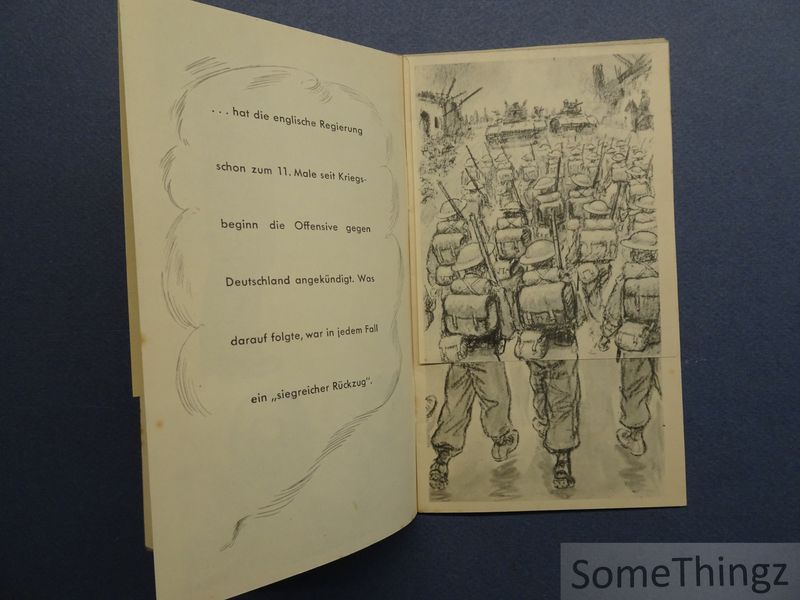 ... hat die englische Regierung
schon zum 11. Male seit Kriegs-
beginn die Offensive gegen
Deutschland angekündigt. Was
darauf folgte, war in jedem Fall
ein „siegreicher Rückzug".
SomeThingz